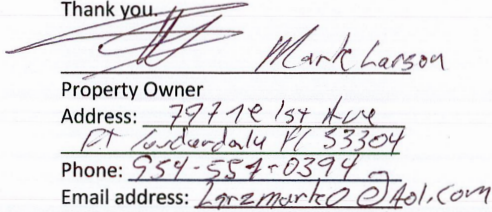 Thank you.
Mark Larson
Property Owner
Address: 797 ne 1st Ave
Ft Lauderdale Fl 33304
Phone: 954-557-0394
Email address: Larzmark0@Aol.com